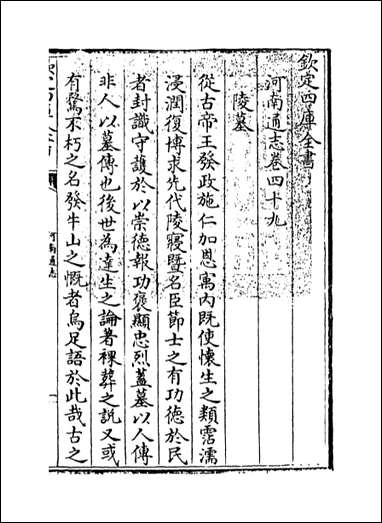 欽定四庫全書
河南通志卷四十九
陵墓
從古帝王發政施仁加恩寓内既使懷生之類霑濡
浸潤復博求先代陵寢暨名臣節士之有功徳於民
者封識守護於以崇徳報功褒顯忠烈蓋墓以人傳
非人以墓傳也後世為達生之論著裸葬之説又或
有騖不朽之名發牛山之慨者烏足語於此哉古之
河南通志